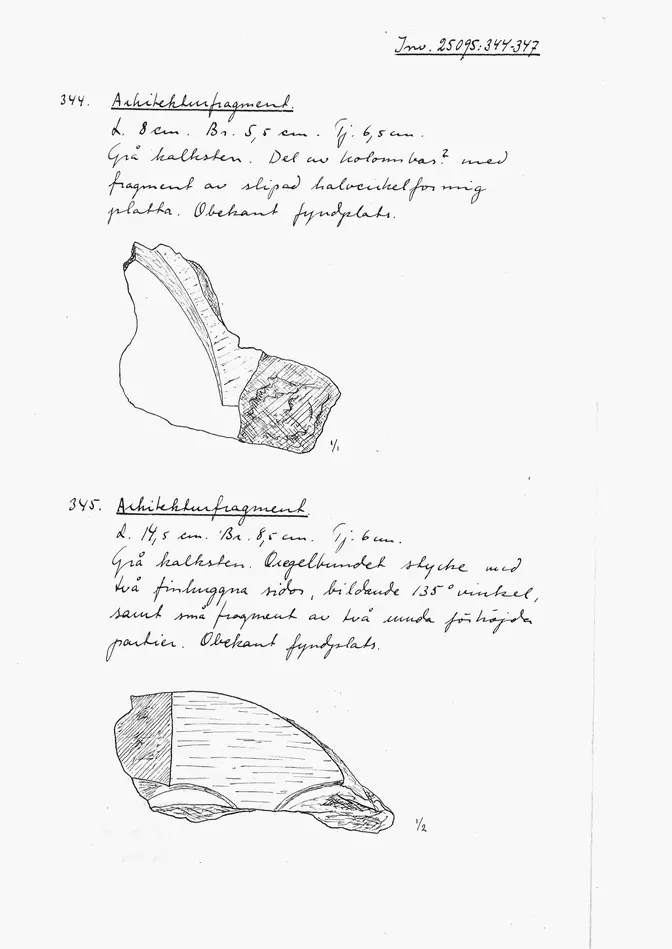 Inv. 25095:344-347
344. Arkitekturfragment.
L. 8 cm. Br. 5,5 cm. Tj. 6,5 cm.
Grå kalksten. Del av kolonnbas? med
fragment av slipad halvcirkelformig
platta. Obekant fyndplats.
1/1
345. Arkitekturfragment.
L. 14,5 cm. Br. 8,5 cm. Tj. 6 cm.
Grå kalksten. Oregelbundet stycke med
två finhuggna sidor, bildande 135° vinkel,
samt små fragment av två runda förhöjda
partier. Obekant fyndplats.
1/2